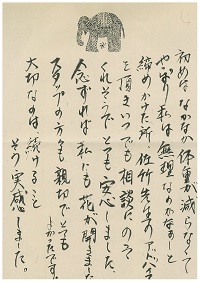 初めはなかなか体重が減らなくて
やっぱり私は無理なのかなぁと
諦めかけた所、佐竹先生のアドバイス
を頂きいつでも相談にのって
くれそうでとても安心しました。
念ずれば私にも花が開きました
スタッフの方々も親切でとても
よかったです。
大切なのは、続けること
そう実感しました。